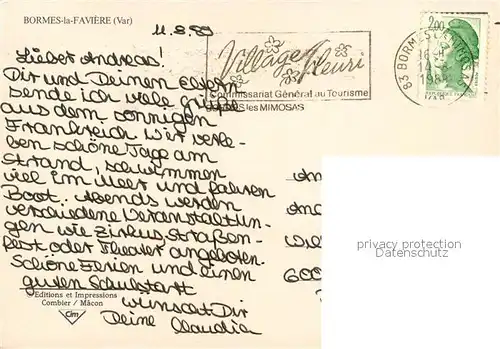 BORMES-la-FAVIÈRE (Var)
Lieber Andreas!
Dir und Deinen Eltern
sende ich viele Grüße
aus dem sonnigen
Frankreich. Wir verle-
ben schöne Tage am
Strand, schwimmen
viel im Meer und fahren
Boot. Abends werden
verschiedene Veranstaltun-
gen wie Zirkus, Straßen-
fest oder Theater angeboten.
Schöne Ferien und einen
guten Schulstart
wünscht Dir
Deine Claudia
Editions et Impressions
Combier / Mâcon
Cim
Village fleuri
Commissariat Général au Tourisme
les MIMOSAS
2,00
83 BORMES
An
An
Wil
600
privacy protection
Datenschutz